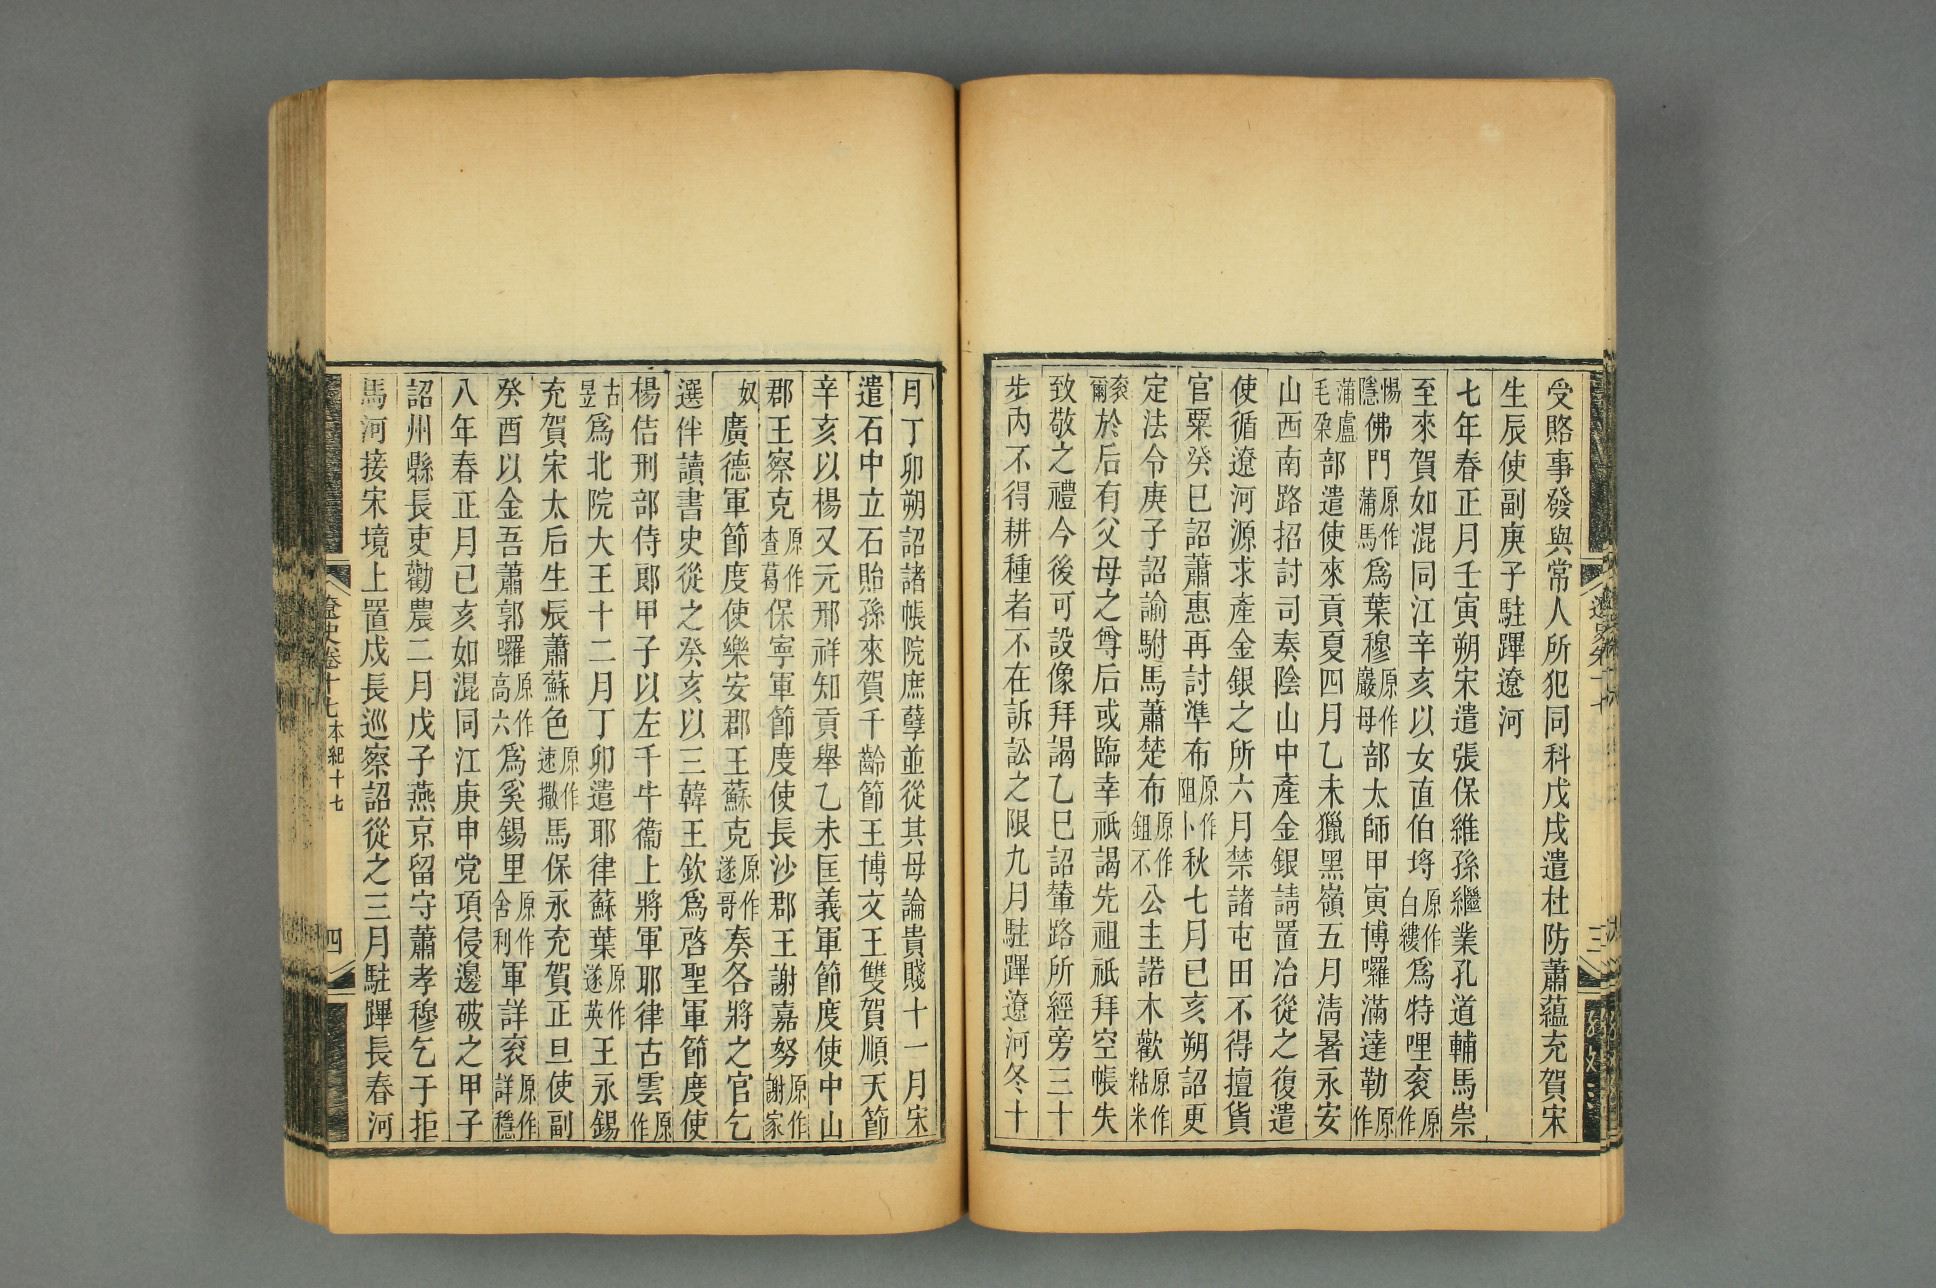 受賂事發與常人所犯同科戊戌遣杜防蕭蘊充賀宋
生辰使副庚子駐蹕遼河
七年春正月壬寅朔宋遣張保維孫繼業孔道輔馬崇
至來賀如混同江辛亥以女直伯埒原作白縷爲特哩衮原作
惕隱佛門原作蒲馬爲葉穆原作巖母部太師甲寅博囉滿達勒原作
蒲盧毛朶部遣使來貢夏四月乙未獵黑嶺五月清暑永安
山西南路招討司奏陰山中產金銀請置冶從之復遣
使循遼河源求產金銀之所六月禁諸屯田不得擅貨
官粟癸巳詔蕭惠再討準布原作阻卜秋七月己亥朔詔更
定法令庚子詔諭駙馬蕭楚布原作鉏不公主諾木歡原作粘米
衮爾於后有父母之尊后或臨幸祇謁先祖祇拜空帳失
致敬之禮今後可設像拜謁乙巳詔輦路所經旁三十
步內不得耕種者不在訴訟之限九月駐蹕遼河冬十
月丁卯朔詔諸帳院庶孽並從其母論貴賤十一月宋
遣石中立石貽孫來賀千齡節王博文王雙賀順天節
辛亥以楊又元邢祥知貢舉乙未匡義軍節度使中山
郡王察克原作査葛保寧軍節度使長沙郡王謝嘉努原作謝家
奴廣德軍節度使樂安郡王蘇克原作遂哥奏各將之官乞
選伴讀書史從之癸亥以三韓王欽爲啓聖軍節度使
楊佶刑部侍郎甲子以左千牛衞上將軍耶律古雲原作
古昱爲北院大王十二月丁卯遣耶律蘇葉原作遂英王永錫
充賀宋太后生辰蕭蘇色原作速撒馬保永充賀正旦使副
癸酉以金吾蕭郭囉原作高六爲奚錫里原作舍利軍詳衮原作詳穩
八年春正月己亥如混同江庚申党項侵邊破之甲子
詔州縣長吏勸農二月戊子燕京留守蕭孝穆乞于拒
馬河接宋境上置戍長巡察詔從之三月駐蹕長春河
遼史卷十七 本紀十七
四